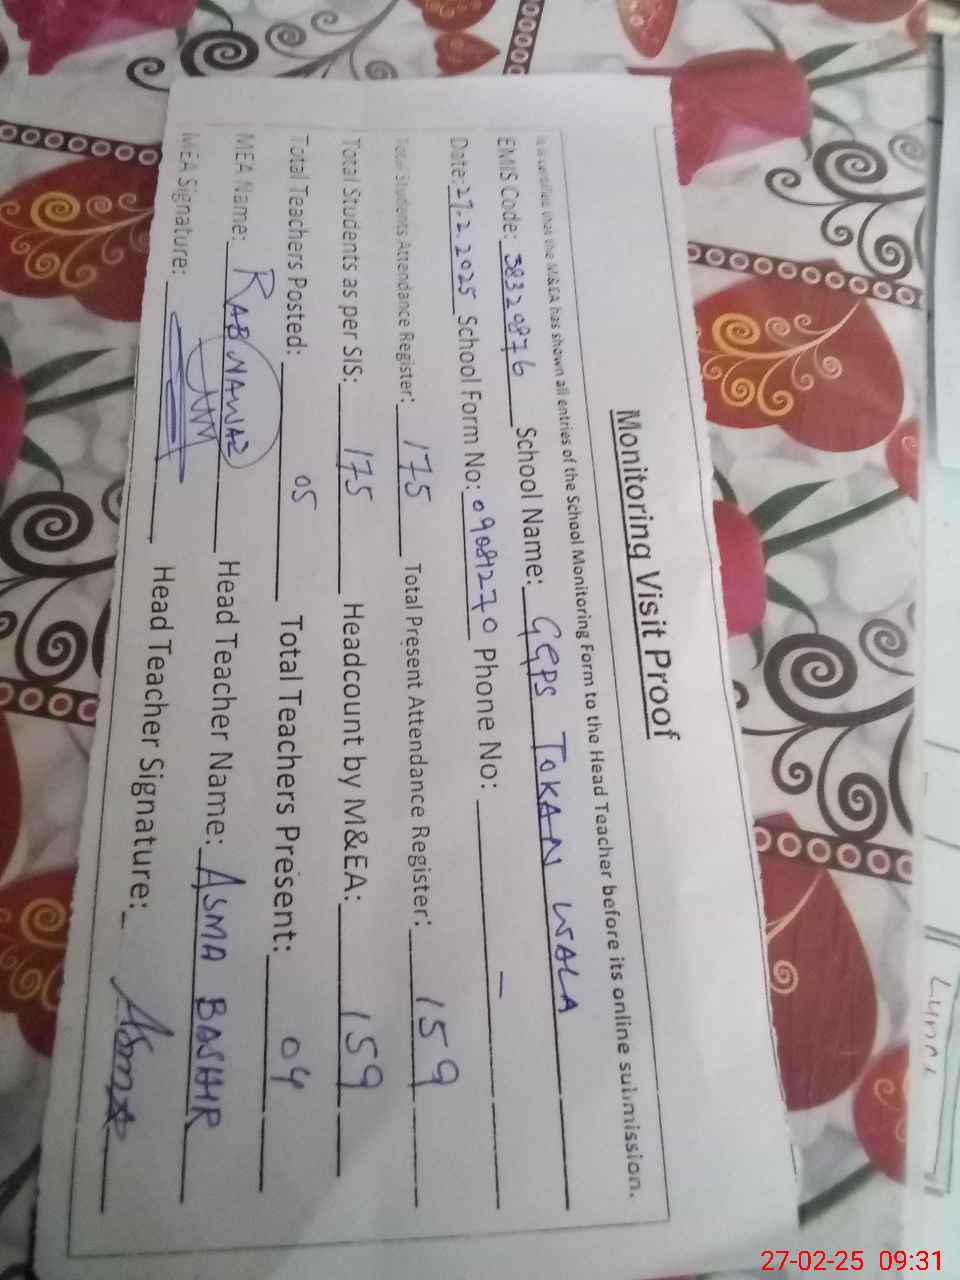 Monitoring Visit Proof
It is certified that the M&EA has shown all entries of the School Monitoring Form to the Head Teacher before its online submission.
EMIS Code: 38320876 School Name: GGPS TOKAN WALA
Date: 27.2.2025 School Form No: 09081270 Phone No: —
Total Students Attendance Register: 175 Total Present Attendance Register: 159
Total Students as per SIS: 175 Headcount by M&EA: 159
Total Teachers Posted: 05 Total Teachers Present: 04
MEA Name: RAB NAWAZ Head Teacher Name: ASMA BASHIR
MEA Signature: Head Teacher Signature: Asma
27-02-25 09:31